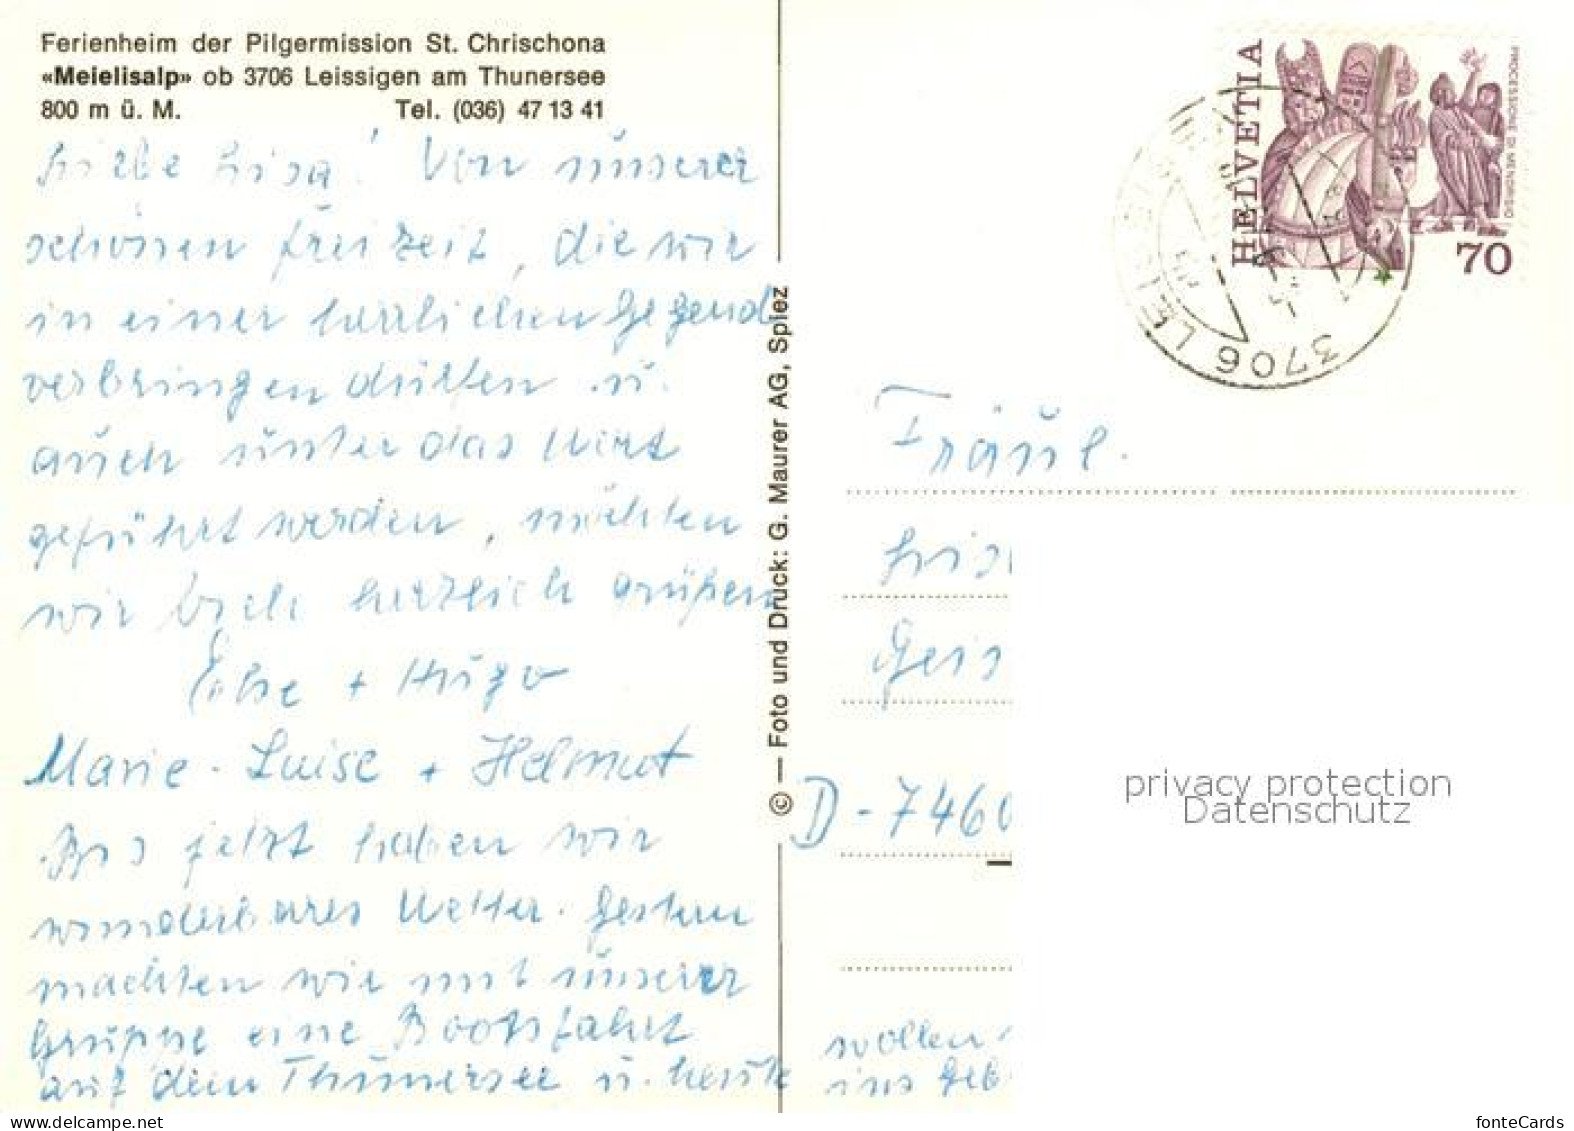 Ferienheim der Pilgermission St. Chrischona
«Meielisalp» ob 3706 Leissigen am Thunersee
800 m ü. M. Tel. (036) 47 13 41
Liebe Lisa! Von unserer
schönen Freizeit, die wir
in einer herrlichen Gegend
verbringen dürfen u.
auch unter das Wort
geführt werden, möchten
wir Dich herzlich grüßen
Else + Hugo
Marie-Luise + Helmut
Bis jetzt haben wir
wunderbares Wetter. Gestern
machten wir mit unserer
Gruppe eine Bootsfahrt
auf dem Thunersee u. heute
wollen
ins Geb
© — Foto und Druck: G. Maurer AG, Spiez
HELVETIA
PROCESSIONE DI MENDRISIO
70
3706 LEISSIGEN
Fräul.
Lis
Geis
D-7460
privacy protection
Datenschutz
www.delcampe.net
fonteCards